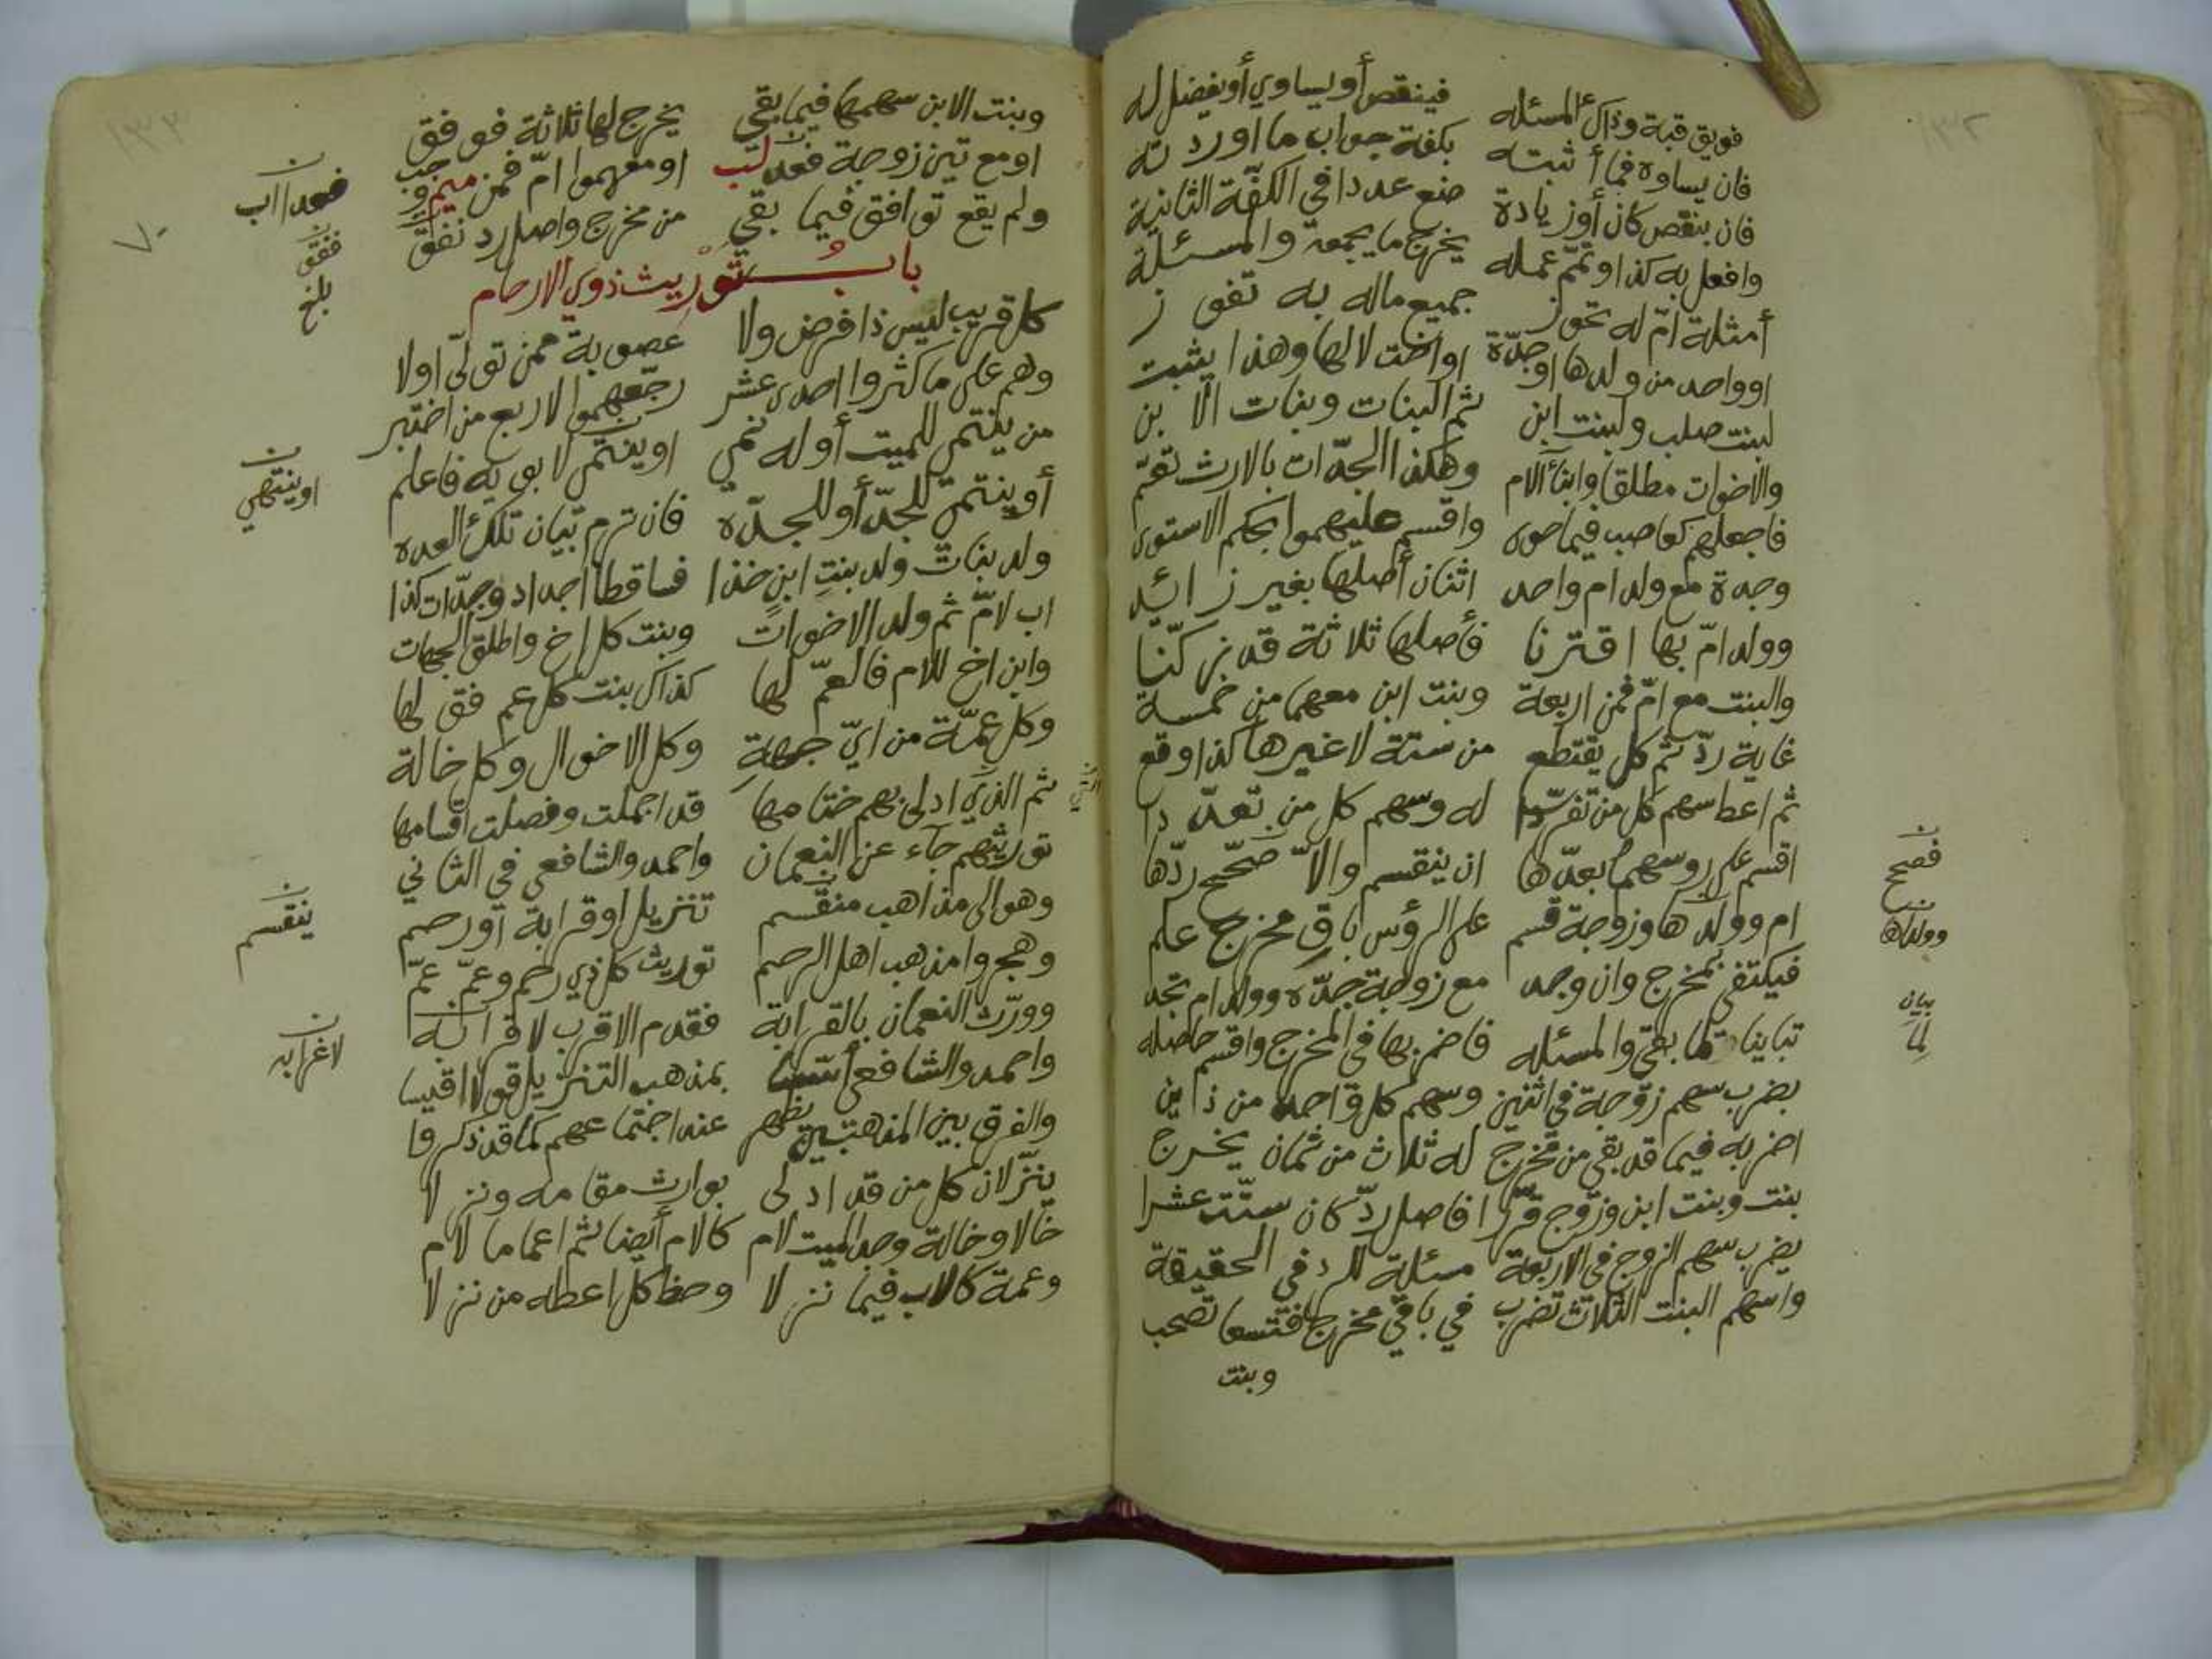 فويق قبة وذاك المسئله فينقص أو يساوي أو يفضل له
فان يساوه فما أثبته بكفة جواب ما اوردته
فان ينقص كان أو زيادة ضع عددا في الكفّة الثانية
وافعل به كذا وتمّم عمله يخرج ما يجمعه والمسئلة
أمثلة امّ له تحوز جميع ماله به تفوز
او واحد من ولدها او جدّة او اخت لا لها وهذا يثبت
لبنت صلب ولبنت ابن ثم البنات وبنات الابن
والاخوات مطلقا وابنا الام وهكذا الجدّات بالارث تعمّ
فاجعلهم كعاصب فيما حوى واقسم عليهموا بحكم الاستوى
وجدة مع ولد ام واحد اثنان أصلها بغير زائد
وولد امّ بها اقترنا فأصلها ثلاثة قد زكنّا
والبنت مع امّ فمن اربعة وبنت ابن معهما من خمسة
غاية ردّ ثم كل يقتطع من ستة لا غيرها كذا وقع
ثم اعط سهم كل من تفرّدا له وسهم كل من تعدّدا
اقسم على روسهم بعدّها ان ينقسم والاّ صحّح ردّها
ام وولدها وزوجة قسم على الرؤس باق مخرج علم
فيكتفى بمخرج وان وجد مع زوجة جدّه وولد ام تجد
تباينا لما بقي والمسئله فاضربها في المخرج واقسم حاصله
بضرب سهم زوجة في اثنين وسهم كل واحد من ذاين
اضربه فيما قد بقي من مخرج له ثلاث من ثمان يخرج
بنت وبنت ابن وزوج قرّرا فاصل ردّ كان ستّت عشرا
يضرب سهم الزوج في الاربعة مسئلة الرد في الحقيقة
واسهم البنت الثلاث تضرب في باقي مخرج فتسعا تصحب
وبنت
فصح
وولداها
بيان
لما
وبنت الابن سهمها فيما بقي يخرج لها ثلاثة فوفق
او مع تين زوجة فعد لتب او معهموا امّ فمن ميم وجب
ولم يقع توافق فيما بقي من مخرج واصل رد نفق
باب توريث ذوي الارحام
كل قريب ليس ذا فرض ولا عصوبة ممن تولّى اولا
وهم على ما كثروا احدى عشر رجّعهموا لاربع من اختبر
من ينتمي للميت أو له نمي او ينتمي لابويه فاعلم
أو ينتمي للجدّ أو للجدّه فان ترم تبيان تلك العده
ولد بنات ولد بنت ابن خذا فساقطا اجداد وجدّات كذا
اب لامّ ثم ولد الاخوات وبنت كل اخ واطلق الجهات
وابن اخ للام فالعمّ لها كذاك بنت كل عم فق لها
وكل عمّة من ايّ جهة وكل الاخوال وكل خالة
ثم الذي ادلى بهم ختامها قد اجملت وفصلت اقسامها
توريثهم جاء عن النعمان واحمد والشافعي في الثاني
وهو الى مذاهب منقسم تنزيل او قرابة او رحم
وهجروا مذهب اهل الرحم توريث كل ذي رحم وعمّ عمّ
وورّث النعمان بالقرابة فقدم الاقرب لا قرابه
واحمد والشافعي بمذهب التنزيل قولا اقيسا
والفرق بين المذهبين يظهر عند اجتماعهم كما قد ذكروا
ينزّلان كل من قد ادلى بوارث مقامه ونزلا
خالا وخالة وجد الميت لام كالام أيضا ثم اعماما لام
وعمة كالاب فيما نزلا وحظ كل اعطه من نزلا
فعد
ففق
بلغ
او ينتهي
ينقسم
لا غرابه
٧٠
١٣٢
١٣٣